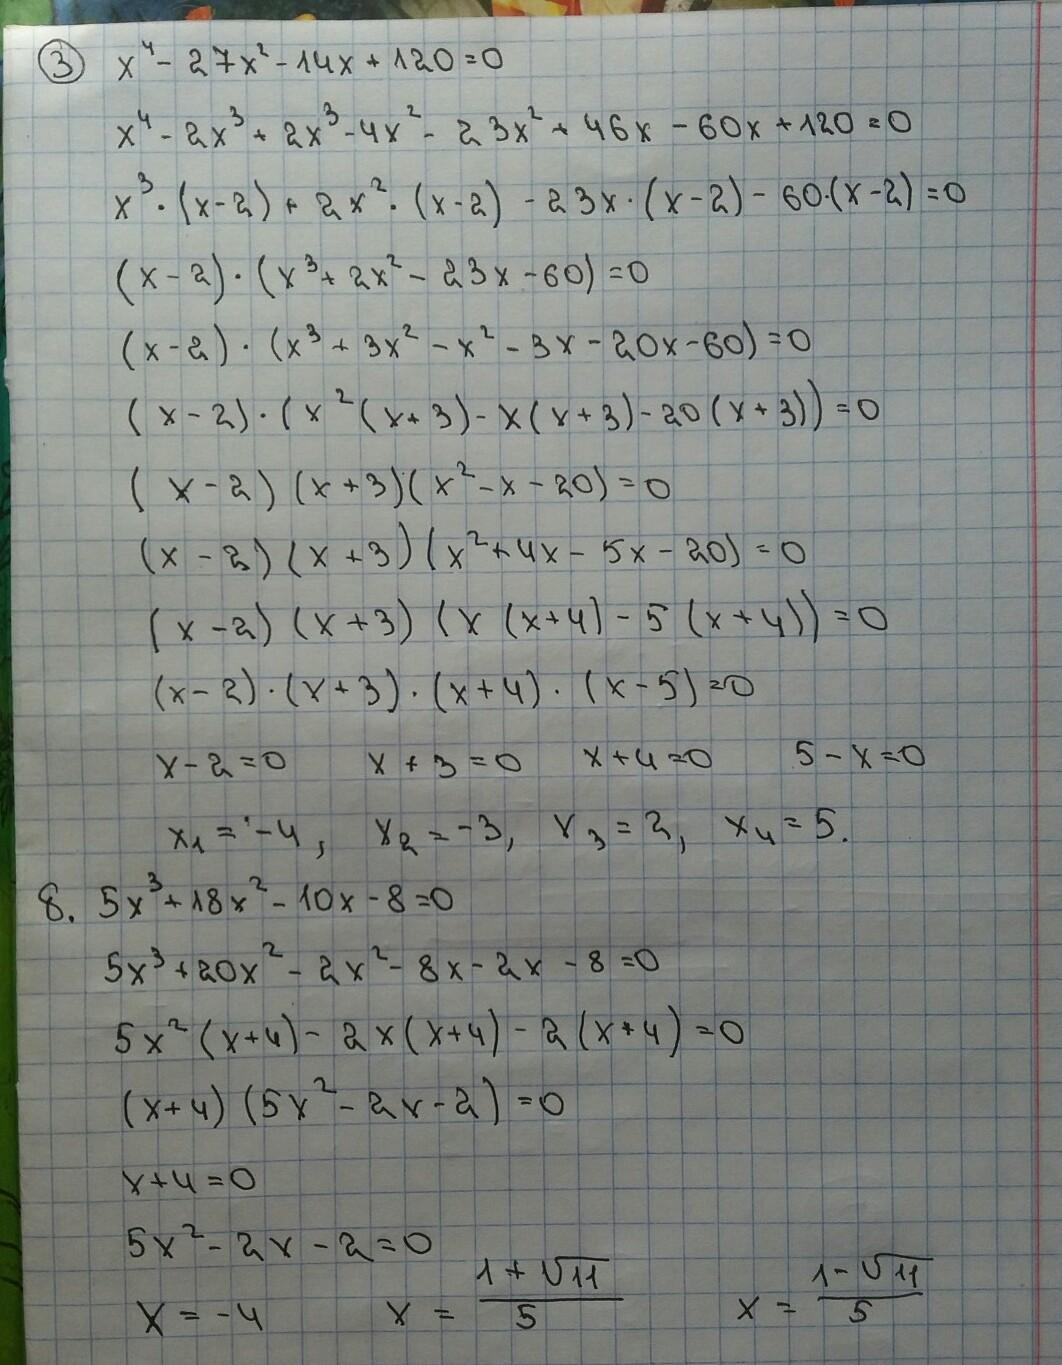 ③ x⁴ - 27x² - 14x + 120 = 0
x⁴ - 2x³ + 2x³ - 4x² - 23x² + 46x - 60x + 120 = 0
x³ · (x-2) + 2x² · (x-2) - 23x · (x-2) - 60·(x-2) = 0
(x-2) · (x³ + 2x² - 23x - 60) = 0
(x-2) · (x³ + 3x² - x² - 3x - 20x - 60) = 0
(x-2) · (x²(x+3) - x(x+3) - 20(x+3)) = 0
(x-2)(x+3)(x² - x - 20) = 0
(x-2)(x+3)(x² + 4x - 5x - 20) = 0
(x-2)(x+3)(x(x+4) - 5(x+4)) = 0
(x-2)·(x+3)·(x+4)·(x-5) = 0
x-2=0 x+3=0 x+4=0 5-x=0
x₁ = -4, x₂ = -3, x₃ = 2, x₄ = 5.
8. 5x³ + 18x² - 10x - 8 = 0
5x³ + 20x² - 2x² - 8x - 2x - 8 = 0
5x²(x+4) - 2x(x+4) - 2(x+4) = 0
(x+4)(5x² - 2x - 2) = 0
x+4=0
5x² - 2x - 2 = 0
x = -4 x = (1+√11)/5 x = (1-√11)/5